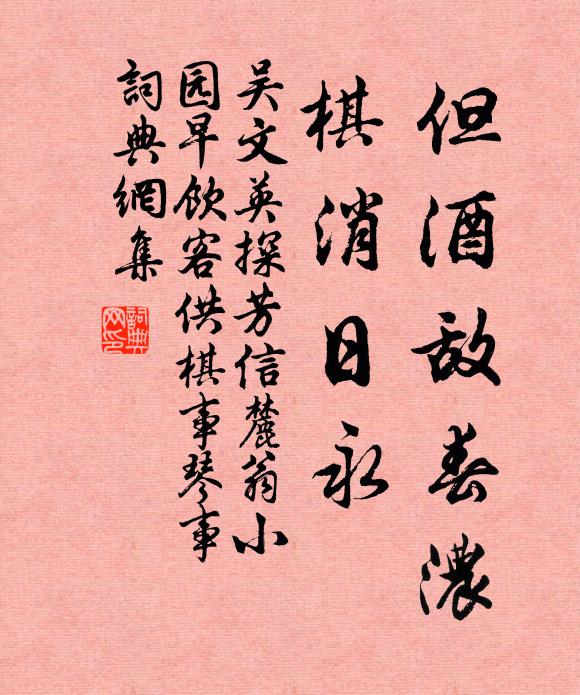 但酒敌春濃
棋消日永
吴文英探芳信麓翁小
园早飲客供棋事琴事
詞典網集
詞典網印